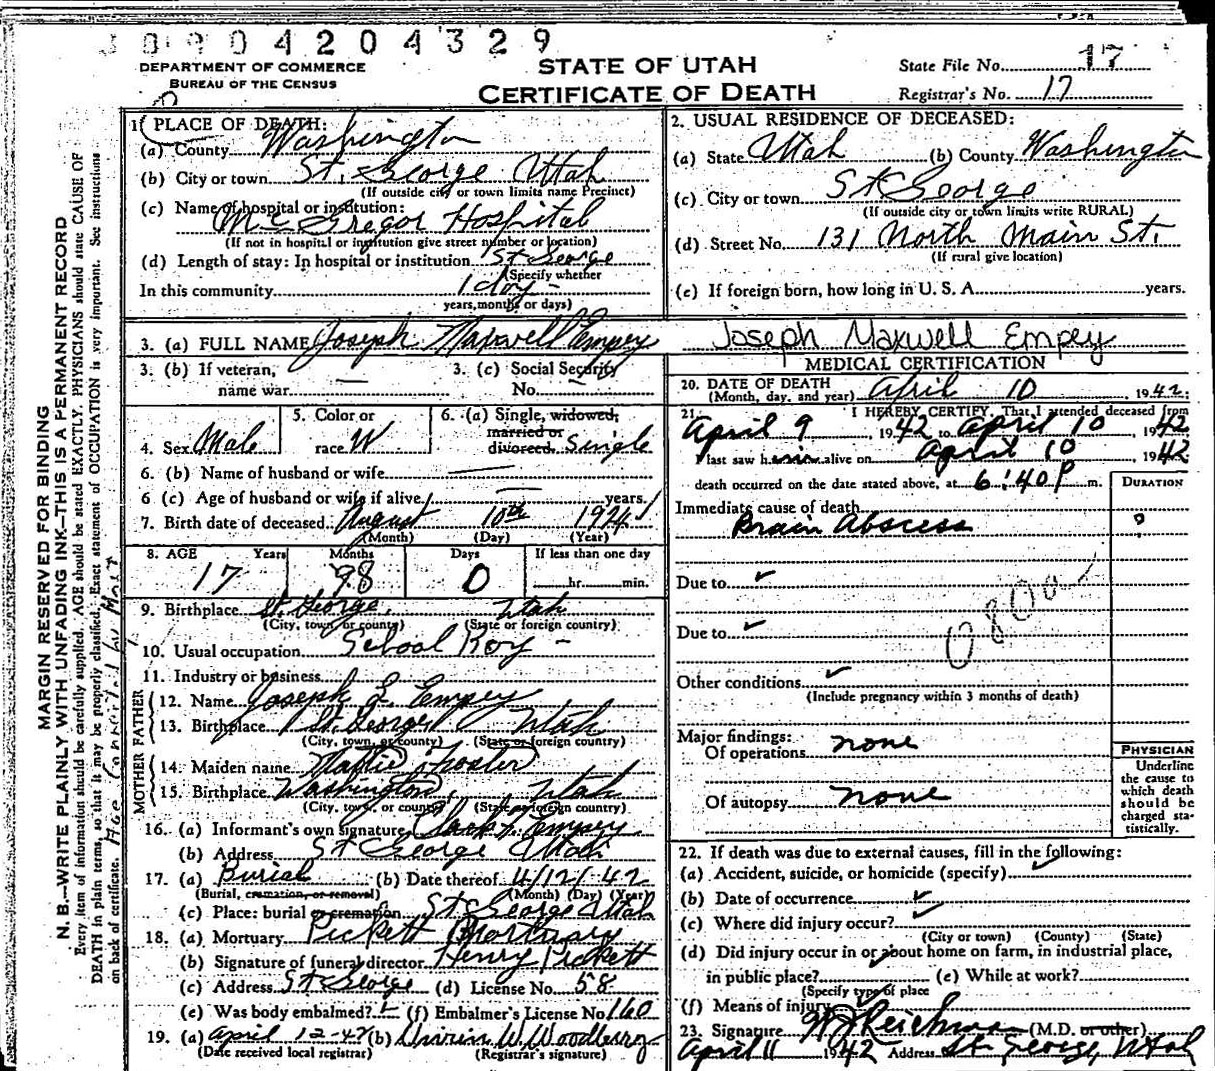 0904204329
DEPARTMENT OF COMMERCE
BUREAU OF THE CENSUS
STATE OF UTAH
CERTIFICATE OF DEATH
State File No. 17
Registrar's No. 17
MARGIN RESERVED FOR BINDING
N. B.—WRITE PLAINLY WITH UNFADING INK—THIS IS A PERMANENT RECORD
Every item of information should be carefully supplied. AGE should be stated EXACTLY. PHYSICIANS should state CAUSE OF
DEATH in plain terms, so that it may be properly classified. Exact statement of OCCUPATION is very important. See instructions
on back of certificate.
1. PLACE OF DEATH:
(a) County Washington
(b) City or town St. George Utah
(If outside city or town limits name Precinct)
(c) Name of hospital or institution:
McGregor Hospital
(If not in hospital or institution give street number or location)
(d) Length of stay: In hospital or institution St George
(Specify whether
In this community 1 day -
years, months or days)
2. USUAL RESIDENCE OF DECEASED:
(a) State Utah (b) County Washington
(c) City or town St George
(If outside city or town limits write RURAL)
(d) Street No. 131 North Main St.
(If rural give location)
(e) If foreign born, how long in U. S. A. years.
3. (a) FULL NAME Joseph Maxwell Empey
Joseph Maxwell Empey
3. (b) If veteran,
name war —
3. (c) Social Security
No. —
4. Sex Male
5. Color or
race W
6. (a) Single, widowed,
married or
divorced. Single
6. (b) Name of husband or wife —
6 (c) Age of husband or wife if alive — years.
7. Birth date of deceased August 10th 1924
(Month) (Day) (Year)
8. AGE Years Months Days If less than one day
17 8 0 hr. min.
9. Birthplace St. George, Utah
(City, town, or county) (State or foreign country)
10. Usual occupation School Boy -
11. Industry or business
FATHER
12. Name Joseph L. Empey
13. Birthplace St. George Utah
(City, town, or county) (State or foreign country)
MOTHER
14. Maiden name Mattie Foster
15. Birthplace Washington, Utah
(City, town, or county) (State or foreign country)
16. (a) Informant's own signature Empey
(b) Address St George Utah
17. (a) Burial (b) Date thereof 4/12/42
(Burial, cremation, or removal) (Month) (Day) (Year)
(c) Place: burial or cremation St George Utah
18. (a) Mortuary Pickett Mortuary
(b) Signature of funeral director Henry Pickett
(c) Address St George (d) License No. 58
(e) Was body embalmed? (f) Embalmer's License No 160
19. (a) April 12-42 (b) W. Woodbury
(Date received local registrar) (Registrar's signature)
MEDICAL CERTIFICATION
20. DATE OF DEATH
(Month, day, and year) April 10 1942
21. I HEREBY CERTIFY, That I attended deceased from
April 9, 1942 to April 10, 1942
I last saw him alive on April 10 1942
death occurred on the date stated above, at 6:40 P m.
DURATION
Immediate cause of death
Brain Abscess
?
Due to
Due to
Other conditions
(Include pregnancy within 3 months of death)
Major findings:
Of operations none
Of autopsy none
PHYSICIAN
Underline
the cause to
which death
should be
charged sta-
tistically.
22. If death was due to external causes, fill in the following:
(a) Accident, suicide, or homicide (specify)
(b) Date of occurrence
(c) Where did injury occur?
(City or town) (County) (State)
(d) Did injury occur in or about home on farm, in industrial place,
in public place? (e) While at work?
(Specify type of place
(f) Means of injury
23. Signature Reichman (M.D. or other)
April 11 1942 Address St. George, Utah